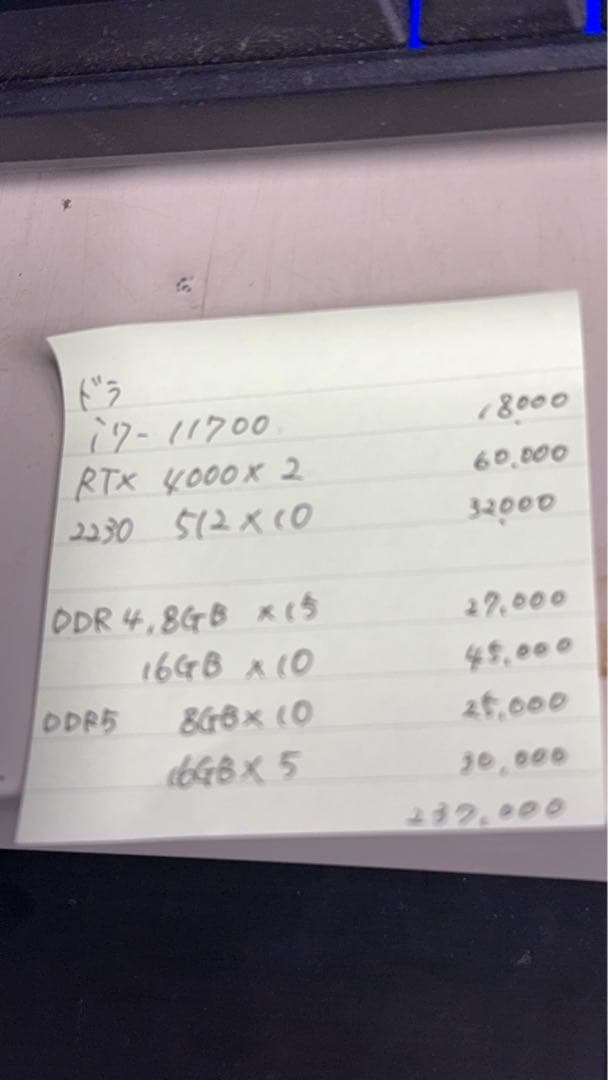 ドラ
i7-11700 18,000
RTX 4000×2 60,000
2230 512×10 32,000
DDR4,8GB ×15 27,000
16GB ×10 45,000
DDR5 8GB×10 25,000
16GB×5 30,000
237,000